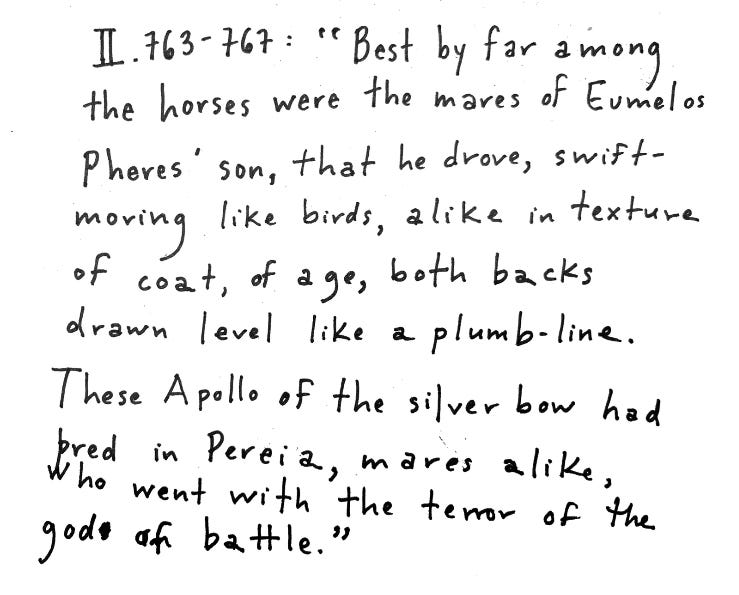 II.763-767: "Best by far among
the horses were the mares of Eumelos
Pheres' son, that he drove, swift-
moving like birds, alike in texture
of coat, of age, both backs
drawn level like a plumb-line.
These Apollo of the silver bow had
bred in Pereia, mares alike,
who went with the terror of the
gods of battle."